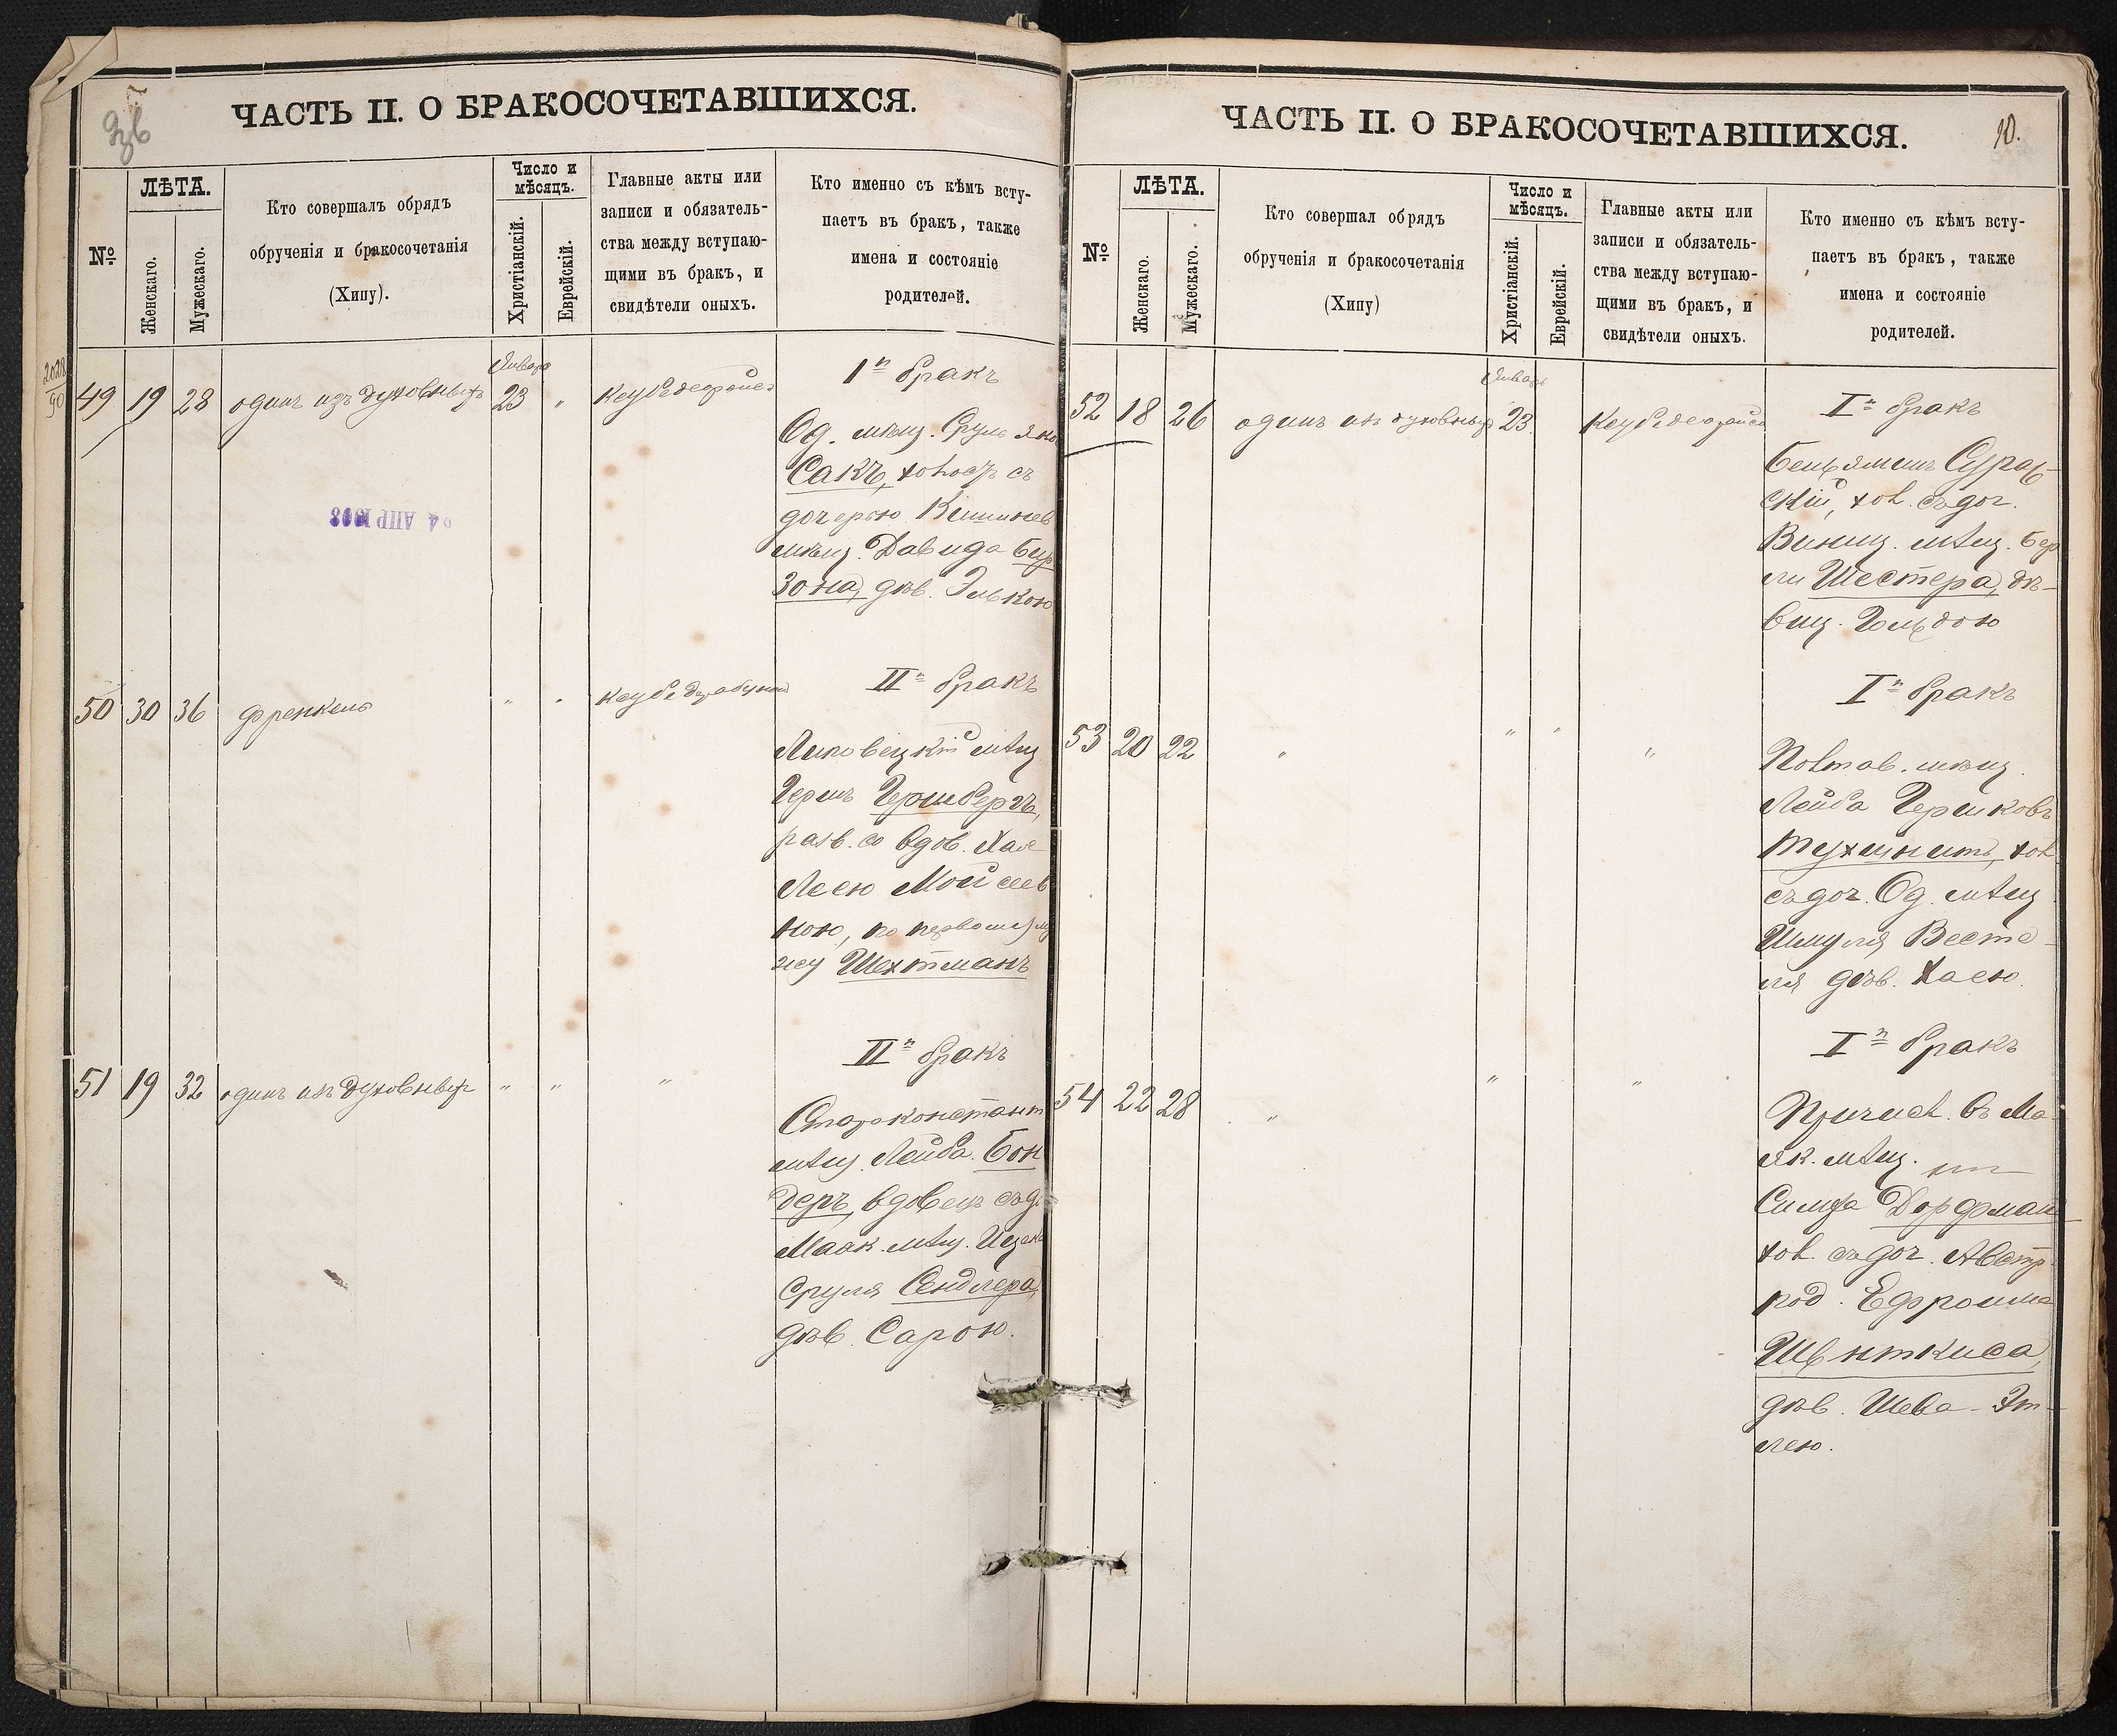 ЧАСТЬ II. О БРАКОСОЧЕТАВШИХСЯ.
№
ЛѢТА.
Женскаго.
Мужескаго.
Кто совершалъ обрядъ
обрученія и бракосочетанія
(Хипу).
Число и
мѣсяцъ.
Христіанскій.
Еврейскій.
Главные акты или
записи и обязатель-
ства между вступаю-
щими въ бракъ, и
свидѣтели оныхъ.
Кто именно съ кѣмъ всту-
паетъ въ бракъ, также
имена и состояніе
родителей.
2028
90
49 19 28 одинъ изъ духовныхъ Января 23 "
Iй бракъ
Од. мѣщ. Сруль
Сакъ, холостъ съ
дочерью Кишинев
мѣщ. Давида Бир
зона, дѣв. Элькою
24 АПР 1903
50 30 36 Френкель " "
IIй бракъ
Липовецкій мѣщ
Гершъ Гершбергъ,
разв. со вдов. Хае
Леею Мойсеев
ною, по первому му
жу Шехтманъ
51 19 32 одинъ изъ духовныхъ " " "
IIй бракъ
Староконстант
мѣщ. Лейба Бон
деръ, вдовецъ съ д
Маяк. мѣщ.
Сруля Сендлера,
дѣв. Сарою.
ЧАСТЬ II. О БРАКОСОЧЕТАВШИХСЯ.
10.
№
ЛѢТА.
Женскаго.
Мужескаго.
Кто совершал обрядъ
обрученія и бракосочетанія
(Хипу)
Число и
мѣсяц.
Христіанскій.
Еврейскій.
Главные акты или
записи и обязатель-
ства между вступаю-
щими въ бракъ, и
свидѣтели оныхъ.
Кто именно съ кѣмъ всту-
паетъ въ бракъ, также
имена и состояніе
родителей.
52 18 26 одинъ изъ духовныхъ Января 23
Iй бракъ
Беньяминъ Сураж-
скій, хол. съ доч.
Винниц. мѣщ. Бер
ли Шестера, дѣ-
виц. Гольдою
53 20 22 " " " "
Iй бракъ
Полтав. мѣщ.
Лейба Гершковъ
хол
съ доч. Од. мѣщ
Шмуля Весте-
ля дѣв. Хаею.
54 22 28 " " "
Iй бракъ
Причисл. въ Ма
як. мѣщ.
Симха Дорфман
хол. съ доч. Австр.
под. Ефроима
дѣв. Шева-Эт-
лею.